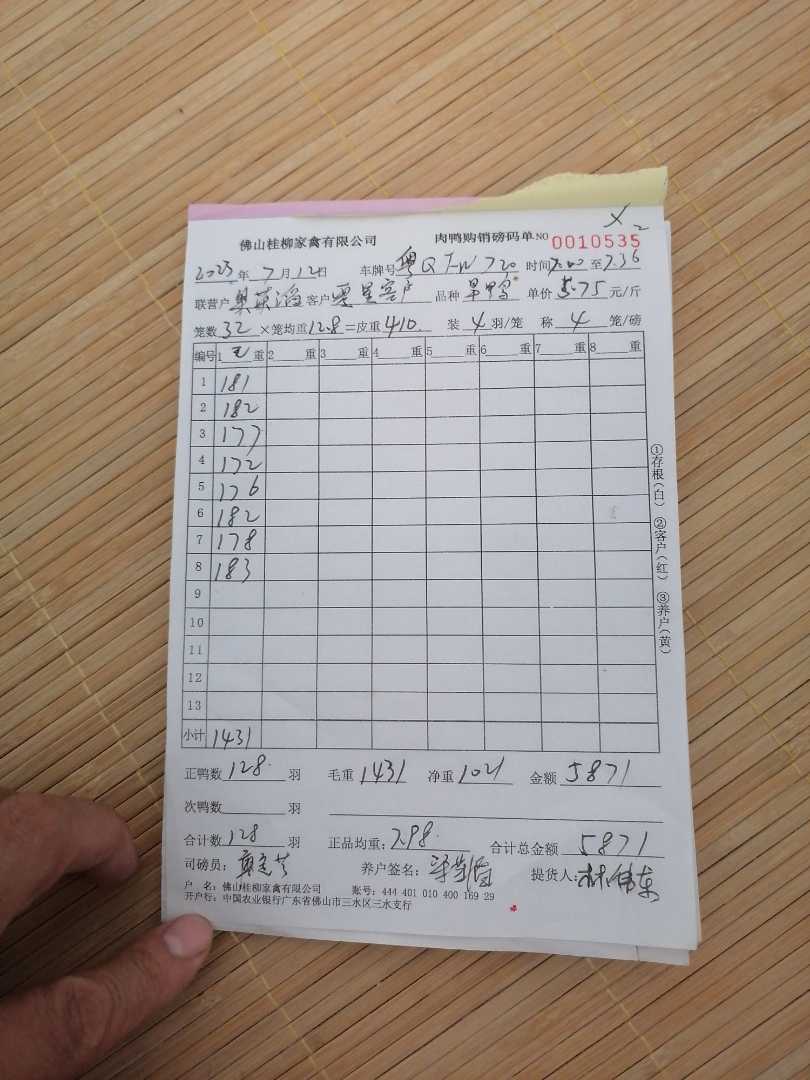 佛山桂柳家禽有限公司 肉鸭购销磅码单 NO 0010535
2023年7月12日 车牌号粤Q 720 时间7.00至7.36
联营户 客户 客户 品种旱鸭 单价5.75元/斤
笼数32×笼均重12.8=皮重410. 装4羽/笼 称4笼/磅
编号 1毛重 2重 3重 4重 5重 6重 7重 8重
1 181
2 182
3 177
4 172
5 176
6 182
7 178
8 183
9
10
11
12
13
小计 1431
正鸭数128.羽 毛重1431 净重1021 金额5871
次鸭数 羽
合计数128羽 正品均重:7.98. 合计总金额5871
司磅员: 养户签名: 提货人:林伟东
户 名:佛山桂柳家禽有限公司 账号:444 401 010 400 169 29
开户行:中国农业银行广东省佛山市三水区三水支行
①存根(白) ②客户(红) ③养户(黄)